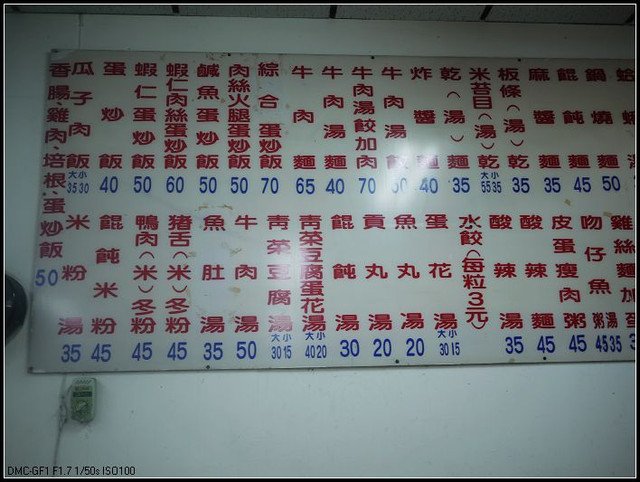 香腸、雞肉、培根、蛋炒飯 50
瓜子肉飯 大小 35 30
蛋炒飯 40
蝦仁蛋炒飯 50
蝦仁肉絲蛋炒飯 60
鹹魚蛋炒飯 50
肉絲火腿蛋炒飯 50
綜合蛋炒飯 70
牛肉麵 65
牛肉湯麵 40
牛肉湯餃加肉 70
牛肉湯飯 50
炸醬麵 40
乾(湯)麵 35
米苔目(湯)乾 大小 55 35
板條(湯)乾 35
麻醬麵 35
餛飩麵 45
鍋燒麵 50
米粉湯 35
餛飩米粉 45
鴨肉(米)冬粉 45
豬舌(米)冬粉 45
魚肚湯 35
牛肉湯 50
青菜豆腐湯 大小 30 15
青菜豆腐蛋花湯 大小 40 20
餛飩湯 30
貢丸湯 20
魚丸湯 20
蛋花湯 大小 30 15
水餃(每粒3元)
酸辣湯 35
酸辣麵 45
皮蛋瘦肉粥 45
吻仔魚粥湯 45 35
雞絲麵加蛋
DMC-GF1 F1.7 1/50s ISO100